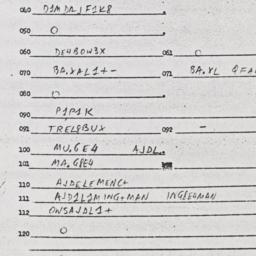 040 D1MDAJF1K8
050 O
060 DE4BOW3X 061 O
070 BA.XAL1+- 071 BA.XL
080 O
090 P1P1K
091 TREL8BUX 092 -
100 MU.GE4 AJDL.
101 MA.GEE4
110 AJDELEMENC+
111 AJD1L1MING+MAN INGEEOMAN
112 OWSAJDL1+
120 O